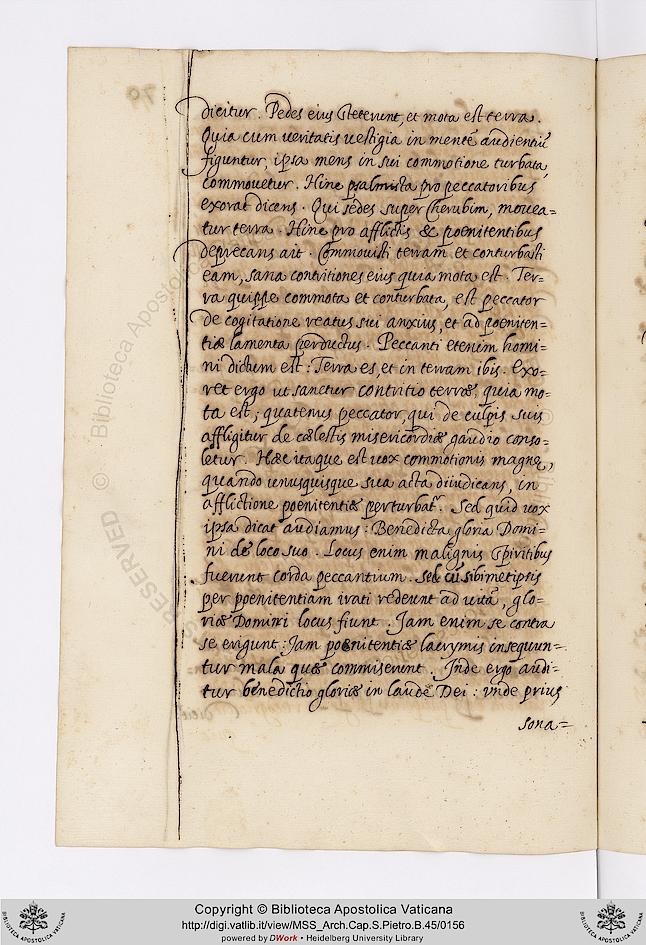 dicitur. Pedes eius steterunt, et mota est terra.
Quia cum veritatis vestigia in mentē audientiū
figuntur, ipsa mens in sui commotione turbata,
commovetur. Hinc psalmista pro peccatoribus
exorat dicens. Qui sedes super Cherubim, movea=
tur terra. Hinc pro afflictis & poenitentibus
deprecans ait. Commovisti terram et conturbasti
eam, sana contritiones eius quia mota est. Ter=
ra quippe commota et conturbata, est peccator
de cogitatione reatus sui anxius, et ad poeniten=
tiæ lamenta perductus. Peccanti etenim homi=
ni dictum est: Terra es, et in terram ibis. Exo=
ret ergo ut sanetur contritio terræ, quia mo=
ta est; quatenus peccator, qui de culpis suis
affligitur de cælestis misericordiæ gaudio conso=
letur. Hæc itaque est vox commotionis magnę,
quando unusquisque sua acta diiudicans, in
afflictione poenitentiæ perturbat^r. Sed quid vox
ipsa dicat audiamus: Benedicta gloria Domi=
ni de loco suo. Locus enim malignis spiritibus
fuerunt corda peccantium. Sed cū sibimetipsis
per poenitentiam irati redeunt ad vitā, glo=
riæ Domini locus fiunt. Jam enim se contra
se erigunt: Jam poenitentiæ lacrymis insequun=
tur mala quæ commiserunt. Inde ergo audi=
tur benedictio gloriæ in laudē Dei: unde prius
sona=
70
© Biblioteca Apostolica Vaticana
RESERVED
Copyright © Biblioteca Apostolica Vaticana
http://digi.vatlib.it/view/MSS_Arch.Cap.S.Pietro.B.45/0156
powered by DWork • Heidelberg University Library